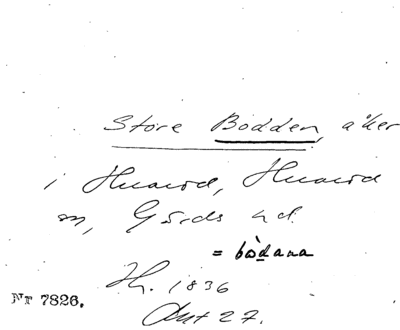 Store Bodden, åker
i Huarod, Huarod
sn, Gärds hd.
= bòdana
H. 1836
Akt 27.
Nr 7826.